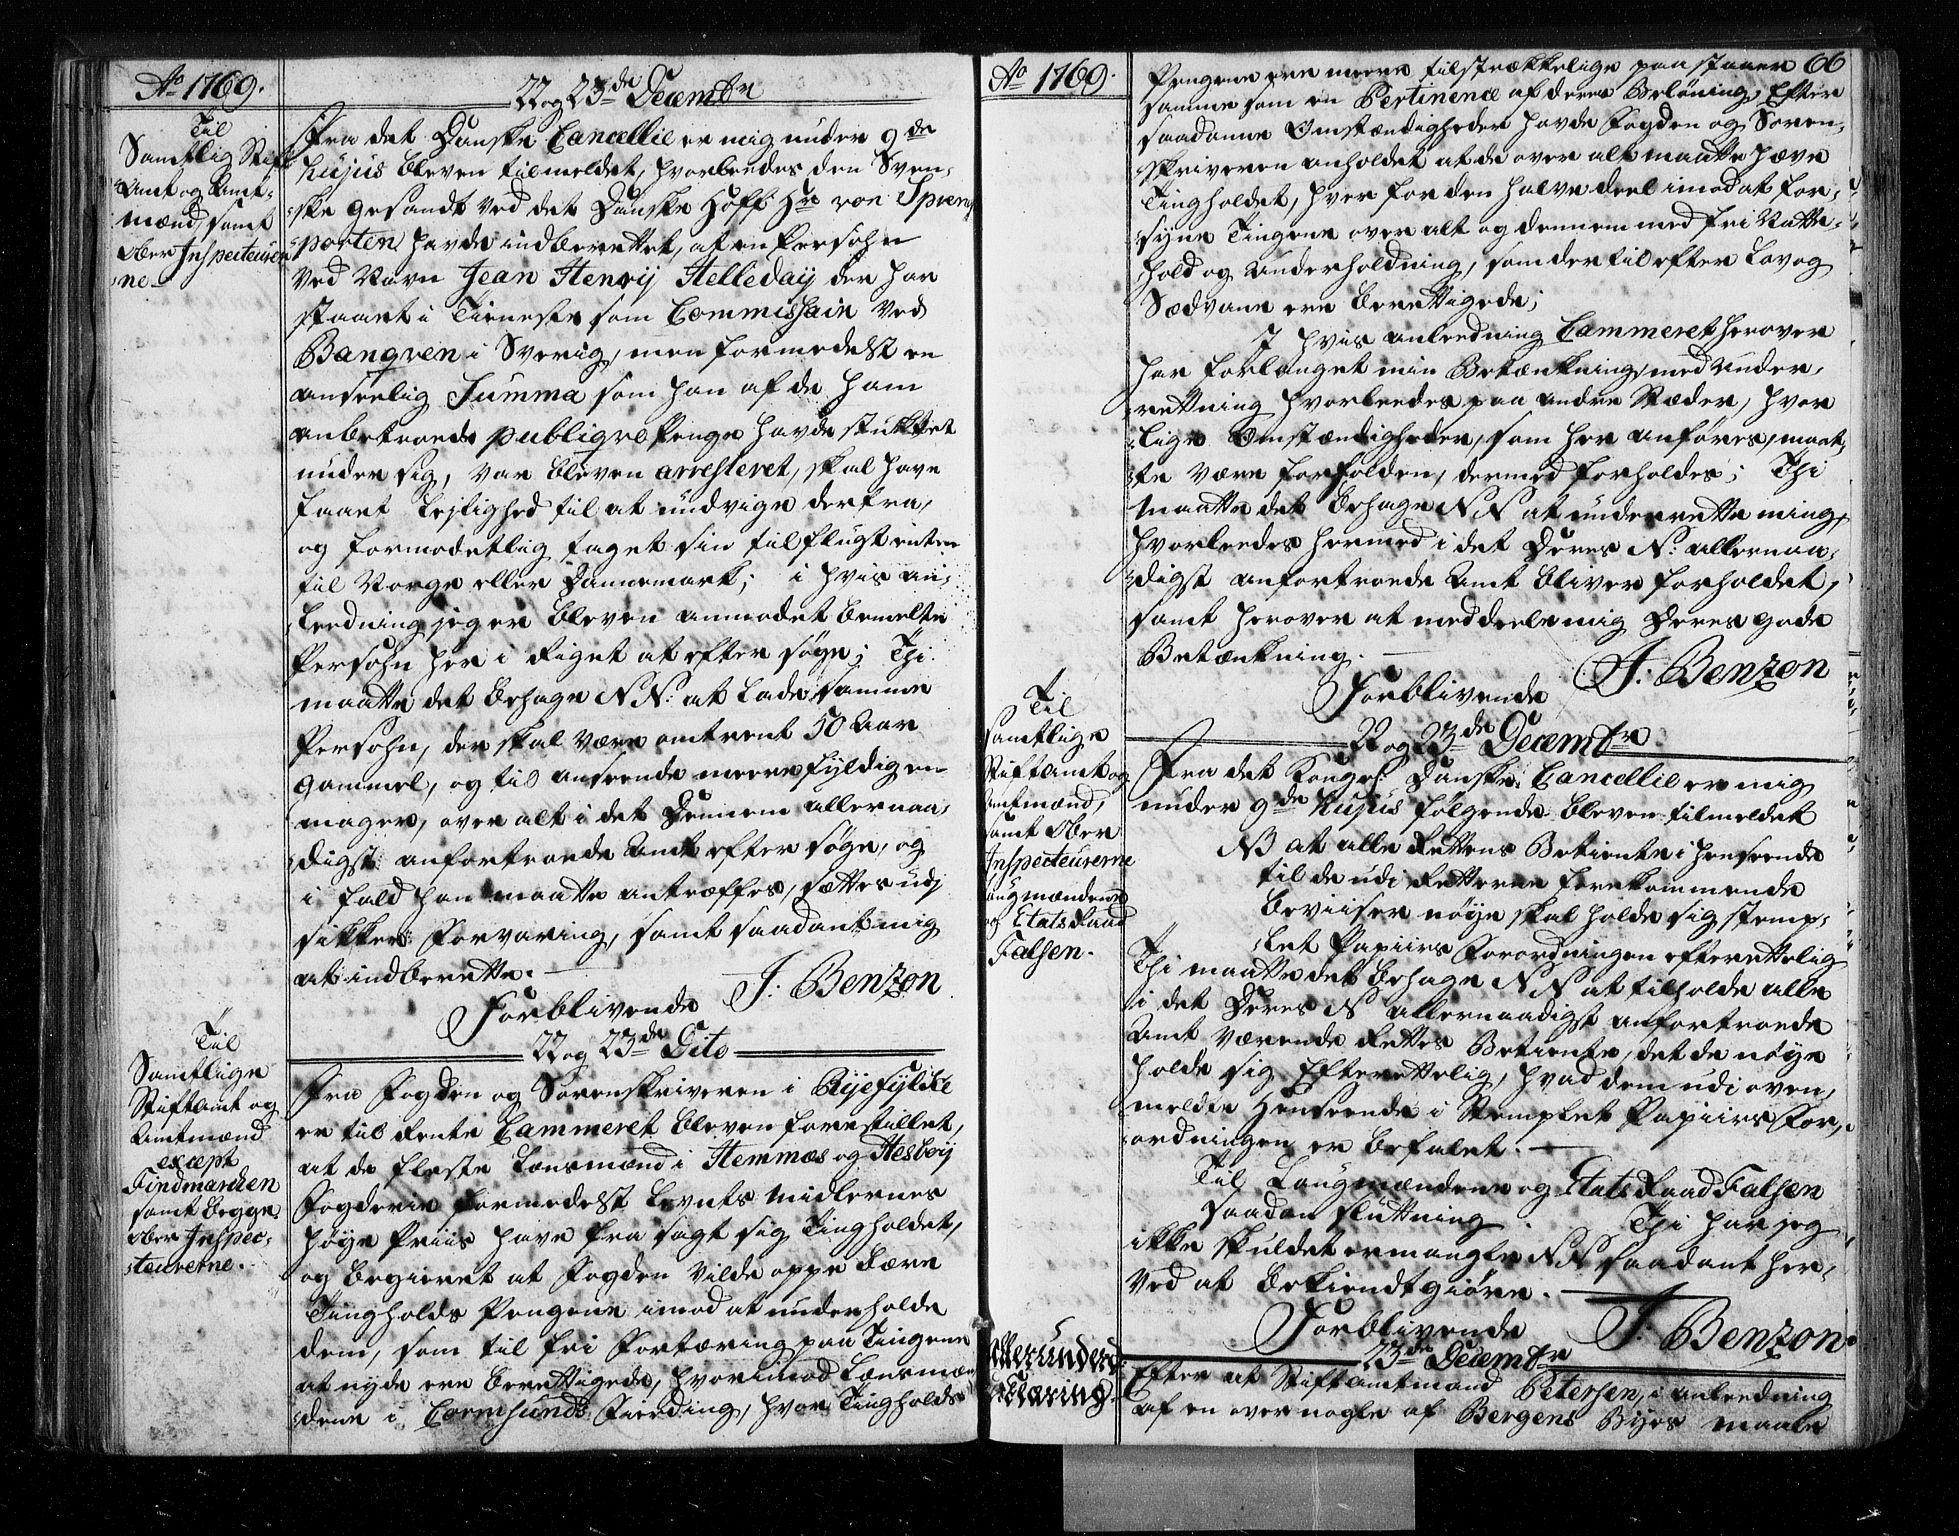 Ao 1769.
22 og 23de Decembr
Til
Samtlig Stift
Amt og Amt-
mænd, samt
Ober Inspecteurer
ne
Fra det Danske Cancellie er mig under 9de
hujus bleven tilmeldet, hvorledes den Sven-
ske Gesandt ved det Danske Hoff Hr von Spreng
porten havde indberettet, at en Persohn
ved Navn Jean Henrij Helleday der har
staaet i Tieneste som Commissair ved
Banqven i Sverig, men formedelst en
anseelig Summa som han af de ham
anbetroede publiqve Penge havde stukket
under sig, var bleven arresteret, skal have
faaet Lejlighed til at undvige derfra,
og formodetlig taget sin tilflugt enten
til Norge eller Dannemark; i hvis an-
leedning jeg er bleven anmodet bemelte
Persohn her i Riget at efter søge; Thi
maatte det behage N N: at lade samme
Persohn, der skal være omtrent 50 Aar
gammel, og til anseende meere fyldig en
mager, over alt i det Dennem allernaa-
digst anfortroede Amt efter søge, og
i fald han maatte antræffes, sættes udj
sikker Forvaring, samt saadant mig
at indberette.
Forblivende J: Benzon
22 og 23de Dito
Til
Samtlige
Stiftamt og
Amtmænd
except
Findmarcken
samt begge
ober Inspec-
teurerne.
Fra Fogden og Sorenskriveren i Ryefylke
er til Rente Cammeret bleven forestillet,
at de fleste Lensmænd i Hemmæs og Hesbery
Fogderie formedelst Levnets Midlernes
høye Priis have fra sagt sig Tingholdet,
og begieret at Fogden vilde oppe bære
Tingholds Pengene imod at underholde
dem, som til fri Fortæring paa Tingene
at nyde ere berettigede, hvorimod Lensmæn
dene i Cormsunds Fierding, hvor Tingholds
Ao 1769.
66
Pengene ere meere tilstrækkelige paastaaer
samme som en Pertinence af deres Belønning, Efter
saadanne Omstændigheder havde Fogden og Soren-
skriveren anholdet at de over alt maatte hæve
Tingholdet, hver for den halve deel imod at for-
syne Tingene over alt og dennem med fri Natte-
hold og Underholdning, som der til efter Lov og
Sædvane ere berettigede;
I hvis anleedning Cammeret herover
har forlanget min Betænkning, med under-
rettning hvorleedes paa andre Stæder, hvor
lige Omstændigheder, som her anføres, maat-
te være forholden, dermed forholdes; Thi
maatte det behage N N at underrette mig,
hvorleedes hermed i det Deres N: allernaa-
digst anfortroede Amt bliver forholdet,
samt herover at meddeele mig Deres gode
Betænkning.
Forblivende J: Benzon
22 og 23de Decembr.
Til
samtlige
Stiftamt og
Amtmænd,
samt Ober
Inspecteurerne
Laugmændene
og Etats Raad
Falsen.
Fra det Kongel: Danske Cancellie er mig
under 9de hujus følgende bleven tilmeldet
NB at alle Rettens Betiente i henseende
til de udi Retterne forekommende
Beviiser nøye skal holde sig stemp-
let Papiirs Forordningen efterrettelig
Thi maatte det behage N N at tilholde alle
i det Deres N allernaadigst anfortroede
Amt værende Rettes Betiente, det de nøye
holde sig Efterrettelig, hvad dem udi oven-
meldte Henseende i Stemplet Papiirs For-
ordningen er befalet.
Til Laugmændene og Etats Raad Falsen
saadan sluttning Thi har jeg
ikke skuldet ermangle N N saadant her-
ved at bekiendtgiøre.
Forblivende J: Benzon
23de Decembr
Allerunderd:
Erklæring.
Efter at Stiftamtmand Petersen, i anleedning
af en over nogle af Bergens Byes maale